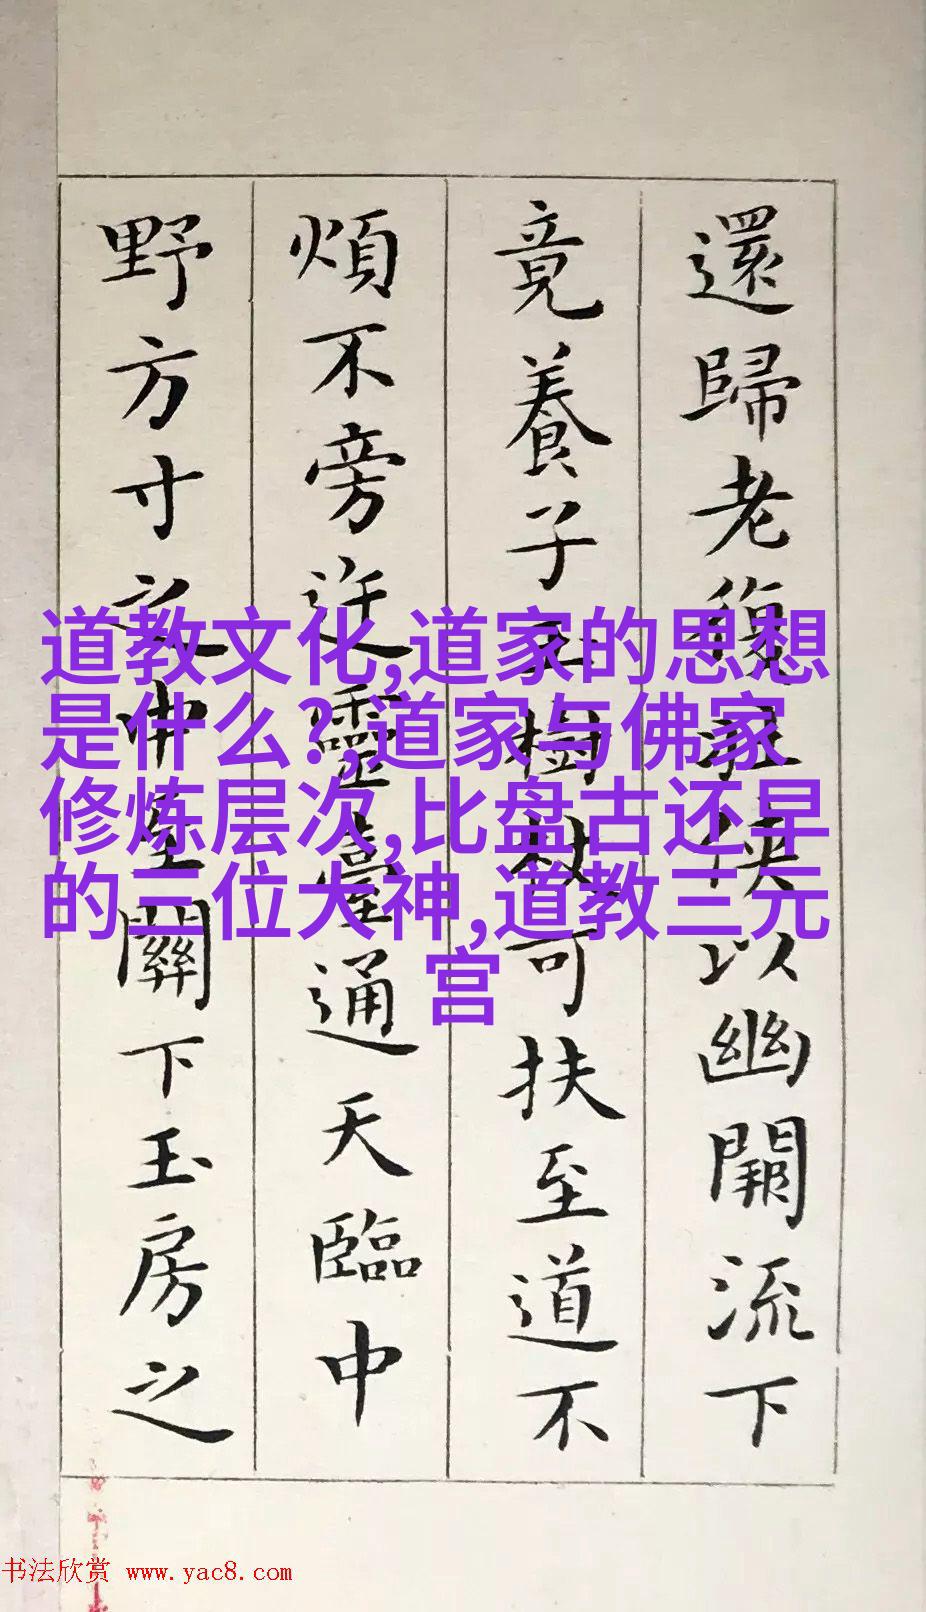 還歸老復壯俠以幽闕流下
竟養子玉樹杖可扶至道不
煩不旁迕靈臺通天臨中
野方寸之中至關下玉房之
道教文化,道家的思想
是什么? 道家与佛家
修炼层次,比盘古还早
的三位大神,道教三元
宫
书法欣赏 www.yac8.com